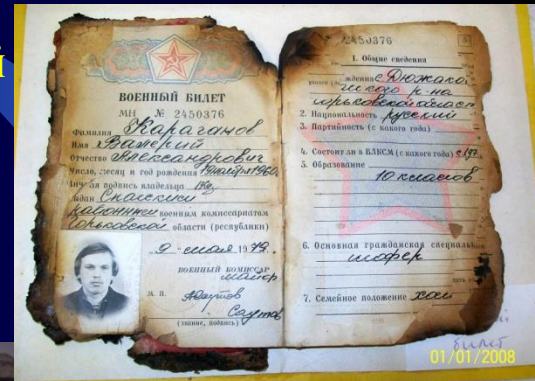 ВОЕННЫЙ БИЛЕТ
МН № 2450376
Фамилия Караганов
Имя Валерий
Отчество Александрович
Число, месяц и год рождения 1960
подпись владельца
Спасским
Районным военным комиссариатом
Горьковской области (республики)
9 мая 1979
ВОЕННЫЙ КОМИССАР
майор
М. П.
Саутов
(звание, подпись)
2450376
1. Общие сведения
р-на
2. Национальность русский
3. Партийность (с какого года)
4. Состоит ли в ВЛКСМ (с какого года) с 197
5. Образование
10 класов
6. Основная гражданская специаль
шофер
7. Семейное положение хол
билет
01/01/2008